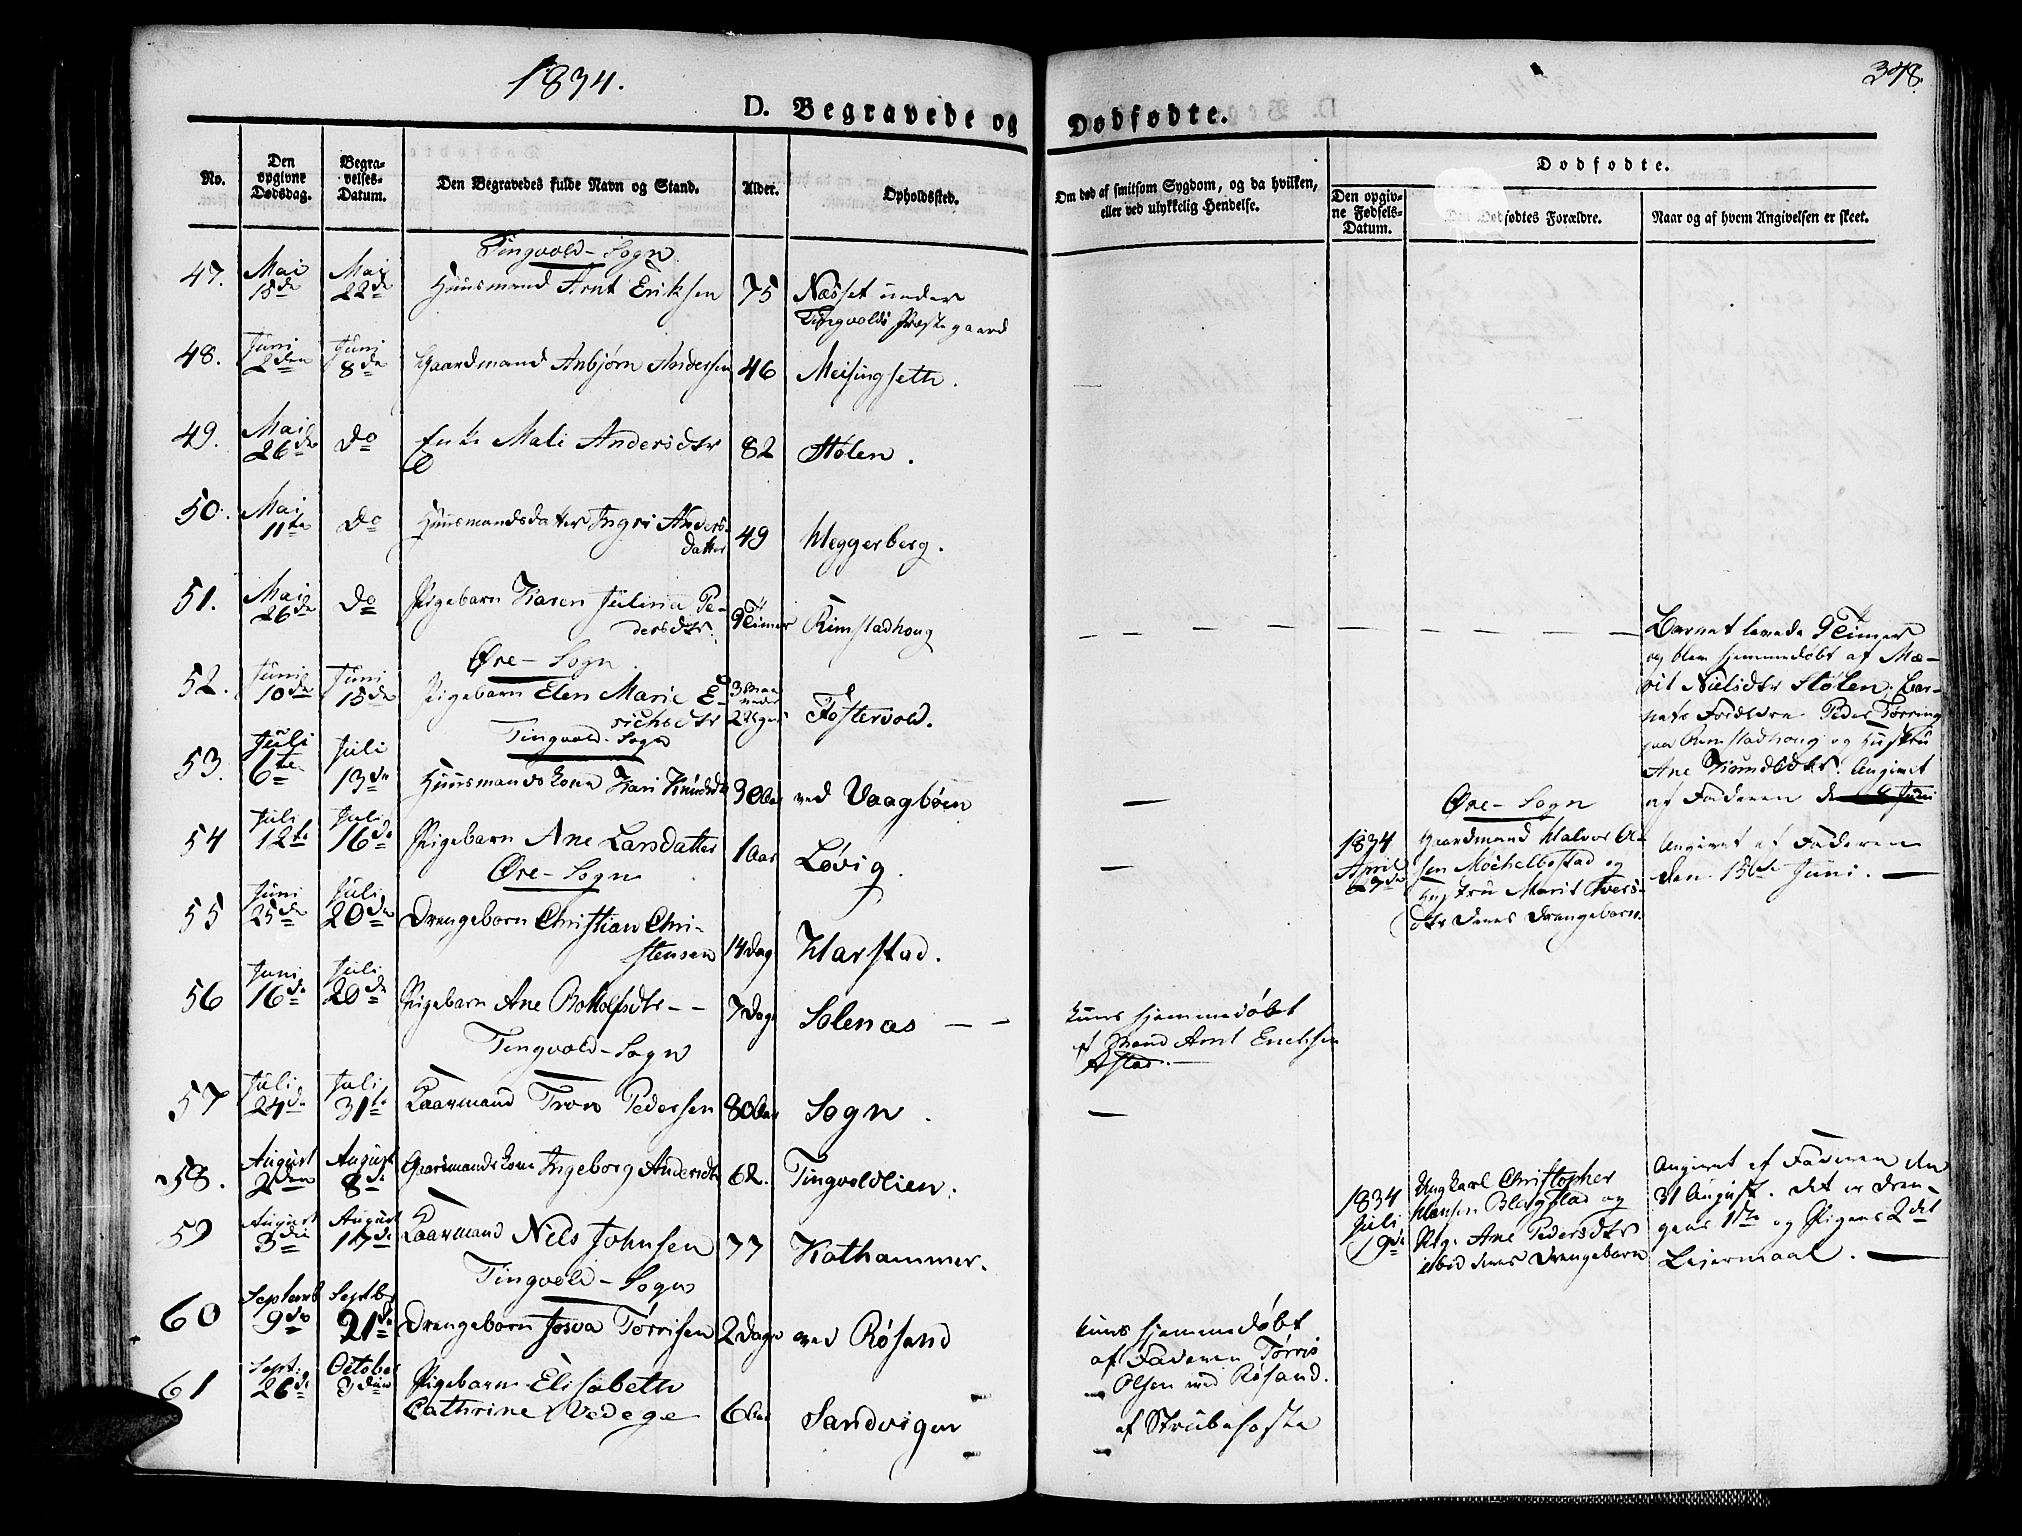 1834.
348.
D. Begravede og Dødfødte.
No.
Den opgivne Dødsdag.
Begravelses-Datum.
Den Begravedes fulde Navn og Stand.
Alder.
Opholdssted.
Om død af smitsom Sygdom, og da hvilken,
eller ved ulykkelig Hendelse.
Dødfødte.
Den opgivne Fødsels-Datum.
Dødfødtes Forældre.
Naar og af hvem Angivelsen er skeet.
Tingvold-Sogn.
47. Mai 15de Mai 22de Huusmand Arnt Eriksen 75 Næsset under
Tingvolds Præstegaard
48. Juni 2den Juni 8de Gaardmand Anbjørn Andersen 46 Meisingseth.
49. Mai 26de Do Enke Mali Andersdtr 82 Stølen.
50. Mai 11te Do Huusmandsdatter Ingri Anders-
datter 49 Heggerberg.
51. Mai 26de Do Pigebarn Karen Julina Pe-
dersdtr. 9 Timer Rimstadhoug
Øre-Sogn.
52. Juni 10de Juni 15de Pigebarn Elen Marie E-
richsdtr 3 Maaneder 2 Uger Fostervold.
Tingvold-Sogn
53. Juli 6te Juli 13de Huusmandskone Kari Knudsdtr 30 Aar ved Vaagbøen
54 Juli 12te Juli 16de Pigebarn Ane Larsdatter 1 Aar Løvig.
Øre-Sogn
55 Juni 25de Juli 20de Drengebarn Christian Chri-
stensen 14 Dag Harstad.
56 Juni 16de Juli 20de Pigebarn Ane Botolfsdtr - - 7 Dage Solenas - -
Tingvold-Sogn
57 Juli 24de Juli 31te Gaarmand Tron Pedersen 80 Aar Sogn.
58. August 2den August 8de Gaarmandskone Ingeborg Andersdtr 62. Tingvoldlien.
59 August 3die August 17de Gaarmand Nils Johnsen 77 Kathammer.
Tingvold-Sogn
60 Septemb 9de Septbr 21de Drengebarn Josva Tørrisen 2 Dage ved Røsand
61 Sept. 26de October 3die Pigebarn Elisabeth
Cathrine Wedege 6 Aar Sandvigen
kuns hjemmedøbt
af Mand Arnt Erichsen
Astad.
kuns hjemmedøbt
af Faderen Tørris
Olsen ved Røsand.
af Strubehoste
Barnet levede 9 Timer
og blev hjemmedøbt af Ma-
rit Nielsdtr Stølen. Bar-
nets Forældre Peder Tørring
paa Rimstadhoug og Hustru
Ane Knudsdtr. Angivet
af Faderen
Øre-Sogn
1834 April Gaardmand Halvor O-
sen Mochelbostad og
Hustru Marit Ivers-
dtr deres Drengebarn.
Angivet af Faderen
den 15de Juni.
1834 Juli 19de Ungkarl Christopher
Hansen Blegstad og
Pige Ane Pedersdtr
ibid deres Drengebarn
Angivet af Faderen den
31 August. Det er Dren-
gens 1ste og Pigens 2det
Leiermaal.